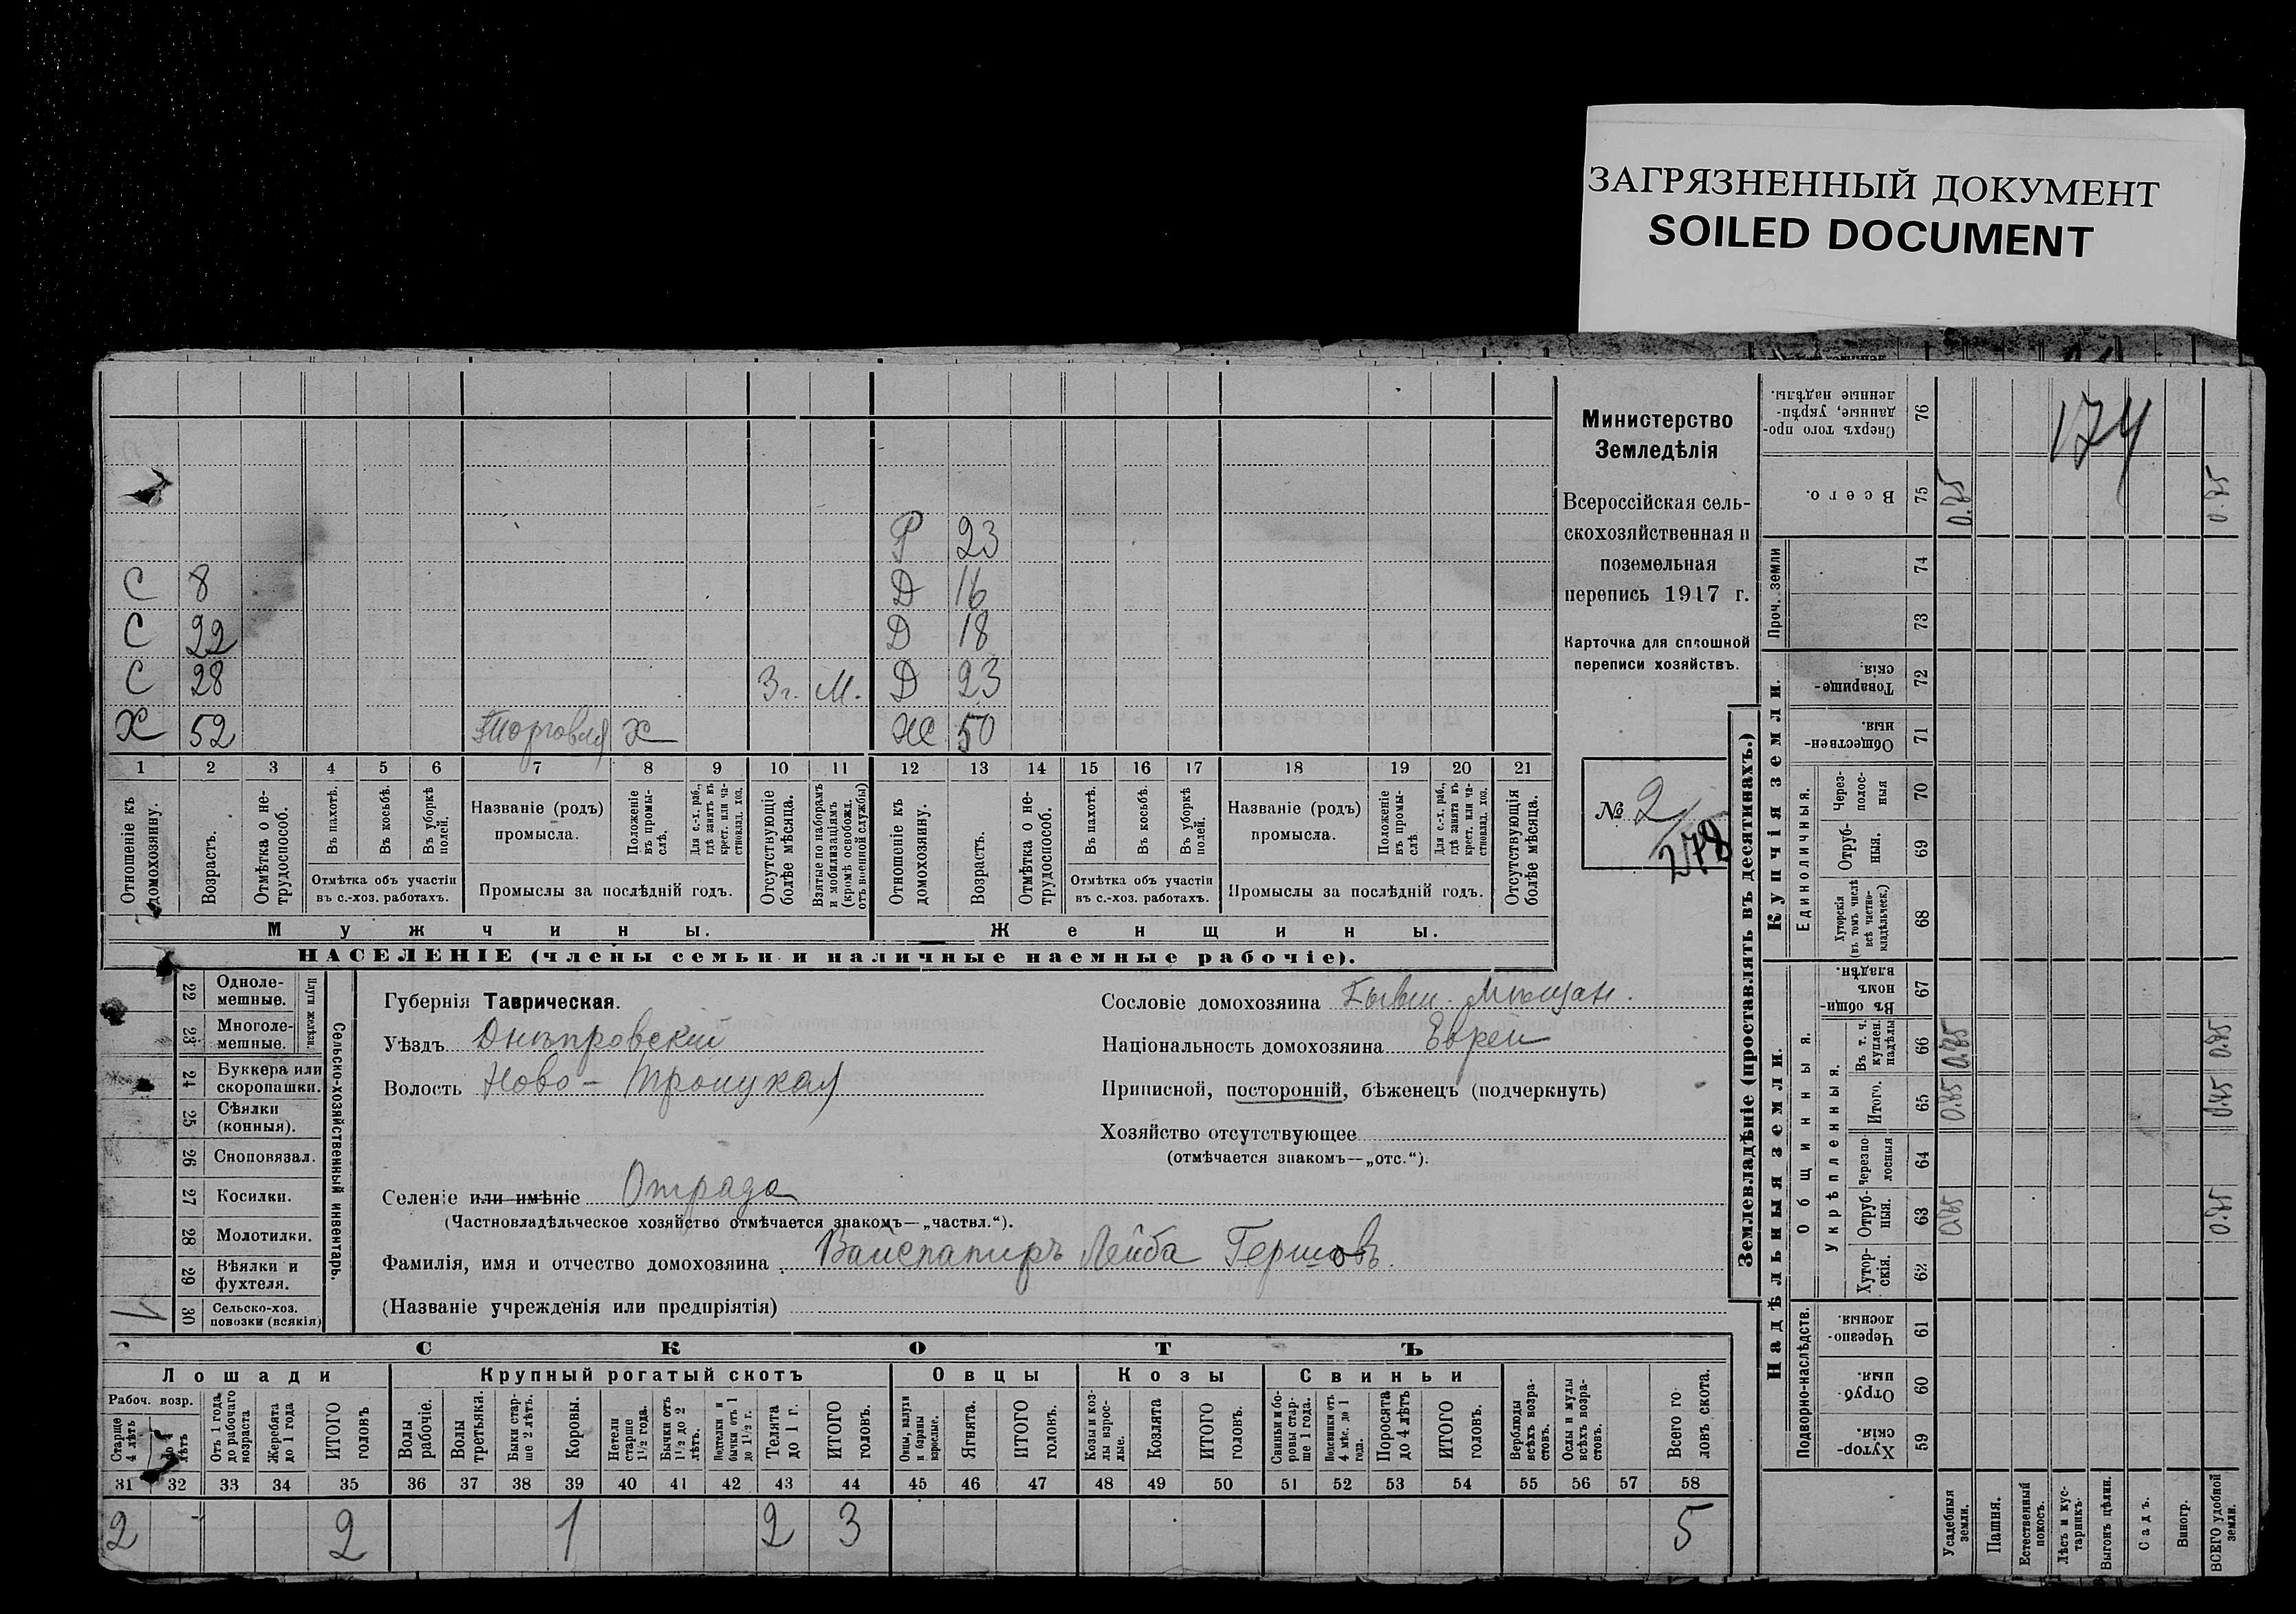 ЗАГРЯЗНЕННЫЙ ДОКУМЕНТ
SOILED DOCUMENT
Р 23
С 8 Д 16
С 22 Д 18
С 28 3 г. М. Д 23
Х 52 Торговля Х Ж 50
1 2 3 4 5 6 7 8 9 10 11 12 13 14 15 16 17 18 19 20 21
Отношеніе къ домохозяину.
Возрастъ.
Отмѣтка о не-трудоспособ.
Въ пахотѣ.
Въ косьбѣ.
Въ уборкѣ полей.
Отмѣтка объ участіи въ с.-хоз. работахъ.
Названіе (родъ) промысла.
Положеніе въ промы-слѣ.
Для с.-х. раб., гдѣ занятъ въ крест. или ча-стновлад. хоз.
Промыслы за послѣдній годъ.
Отсутствующіе болѣе мѣсяца.
Взятые по наборамъ и мобилизаціямъ (кромѣ освобожд. отъ военной службы)
Отношеніе къ домохозяину.
Возрастъ.
Отмѣтка о не-трудоспособ.
Въ пахотѣ.
Въ косьбѣ.
Въ уборкѣ полей.
Отмѣтка объ участіи въ с.-хоз. работахъ.
Названіе (родъ) промысла.
Положеніе въ промы-слѣ
Для с.-х. раб., гдѣ занята въ крест. или ча-стновлад. хоз.
Промыслы за послѣдній годъ.
Отсутствующія болѣе мѣсяца.
Мужчины. Женщины.
НАСЕЛЕНІЕ (члены семьи и наличные наемные рабочіе).
Министерство
Земледѣлія
Всероссійская сель-
скохозяйственная и
поземельная
перепись 1917 г.
Карточка для сплошной
переписи хозяйствъ.
№ 2
278
Сельско-хозяйственный инвентарь.
Плуги желѣзн.
22 Одноле-мешные.
23 Многоле-мешные.
24 Буккера или скоропашки.
25 Сѣялки (конныя).
26 Сноповязал.
27 Косилки.
28 Молотилки.
29 Вѣялки и фухтеля.
30 Сельско-хоз. повозки (всякія) 1
Губернія Таврическая.
Уѣздъ Днѣпровскій
Волость Ново-Троицкая
Сословіе домохозяина Бывш. Мѣщан.
Національность домохозяина Еврей
Приписной, посторонній, бѣженецъ (подчеркнуть)
Хозяйство отсутствующее
(отмѣчается знакомъ—„отс.“).
Селеніе или имѣніе Отрада
(Частновладѣльческое хозяйство отмѣчается знакомъ—„частвл.“).
Фамилія, имя и отчество домохозяина Вайспапиръ Лейба Гершовъ.
(Названіе учрежденія или предпріятія)
СКОТЪ
Лошади Крупный рогатый скотъ Овцы Козы Свиньи
Рабоч. возр.
Старше 4 лѣтъ
До 4 лѣтъ
Отъ 1 года до рабочаго возраста
Жеребята до 1 года
ИТОГО головъ
Волы рабочіе.
Волы третьяки.
Быки стар-ше 2 лѣтъ.
Коровы.
Нетели старше 1 1/2 года.
Бычки отъ 1 1/2 до 2 лѣтъ.
Подтелки и бычки отъ 1 до 1 1/2 г.
Телята до 1 г.
ИТОГО головъ.
Овцы, валухи и бараны взрослые.
Ягнята.
ИТОГО головъ.
Козы и коз-лы взрос-лые.
Козлята
ИТОГО головъ.
Свиньи и бо-ровы стар-ше 1 года.
Подсвинки отъ 4 мѣс. до 1 года.
Поросята до 4 лѣтъ
ИТОГО головъ.
Верблюды всѣхъ возра-стовъ.
Ослы и мулы всѣхъ возра-стовъ.
Всего го-ловъ скота.
31 32 33 34 35 36 37 38 39 40 41 42 43 44 45 46 47 48 49 50 51 52 53 54 55 56 57 58
2 2 1 2 3 5
Землевладѣніе (проставлять въ десятинахъ.)
Надѣльныя земли.
Купчія земли.
Проч. земли
Подворно-наслѣдств.
Общинныя.
Укрѣпленныя.
Единоличныя.
Хутор-скія. 59
Отруб-ныя. 60
Черезпо-лосныя. 61
Хутор-скія. 62
Отруб-ныя. 63
Черезпо-лосныя 64
Итого. 65
Въ т. ч. куплен. надѣлы 66
Въ общин-номъ владѣн. 67
Хуторскія (въ томъ числѣ всѣ частно-владѣльческ.) 68
Отруб-ныя. 69
Через-полос-ныя 70
Обществен-ныя. 71
Товарище-скія. 72
73
74
Всего. 75
Сверхъ того про-данные, укрѣп-ленные надѣлы. 76
Усадебныя земли. 0.85 0.85 0.85 0.85
Пашня.
Естественный покосъ.
Лѣсъ и кус-тарникъ.
Выгонъ цѣлин.
Садъ.
Виногр.
ВСЕГО удобной земли. 0.85 0.85 0.85 0.85
174